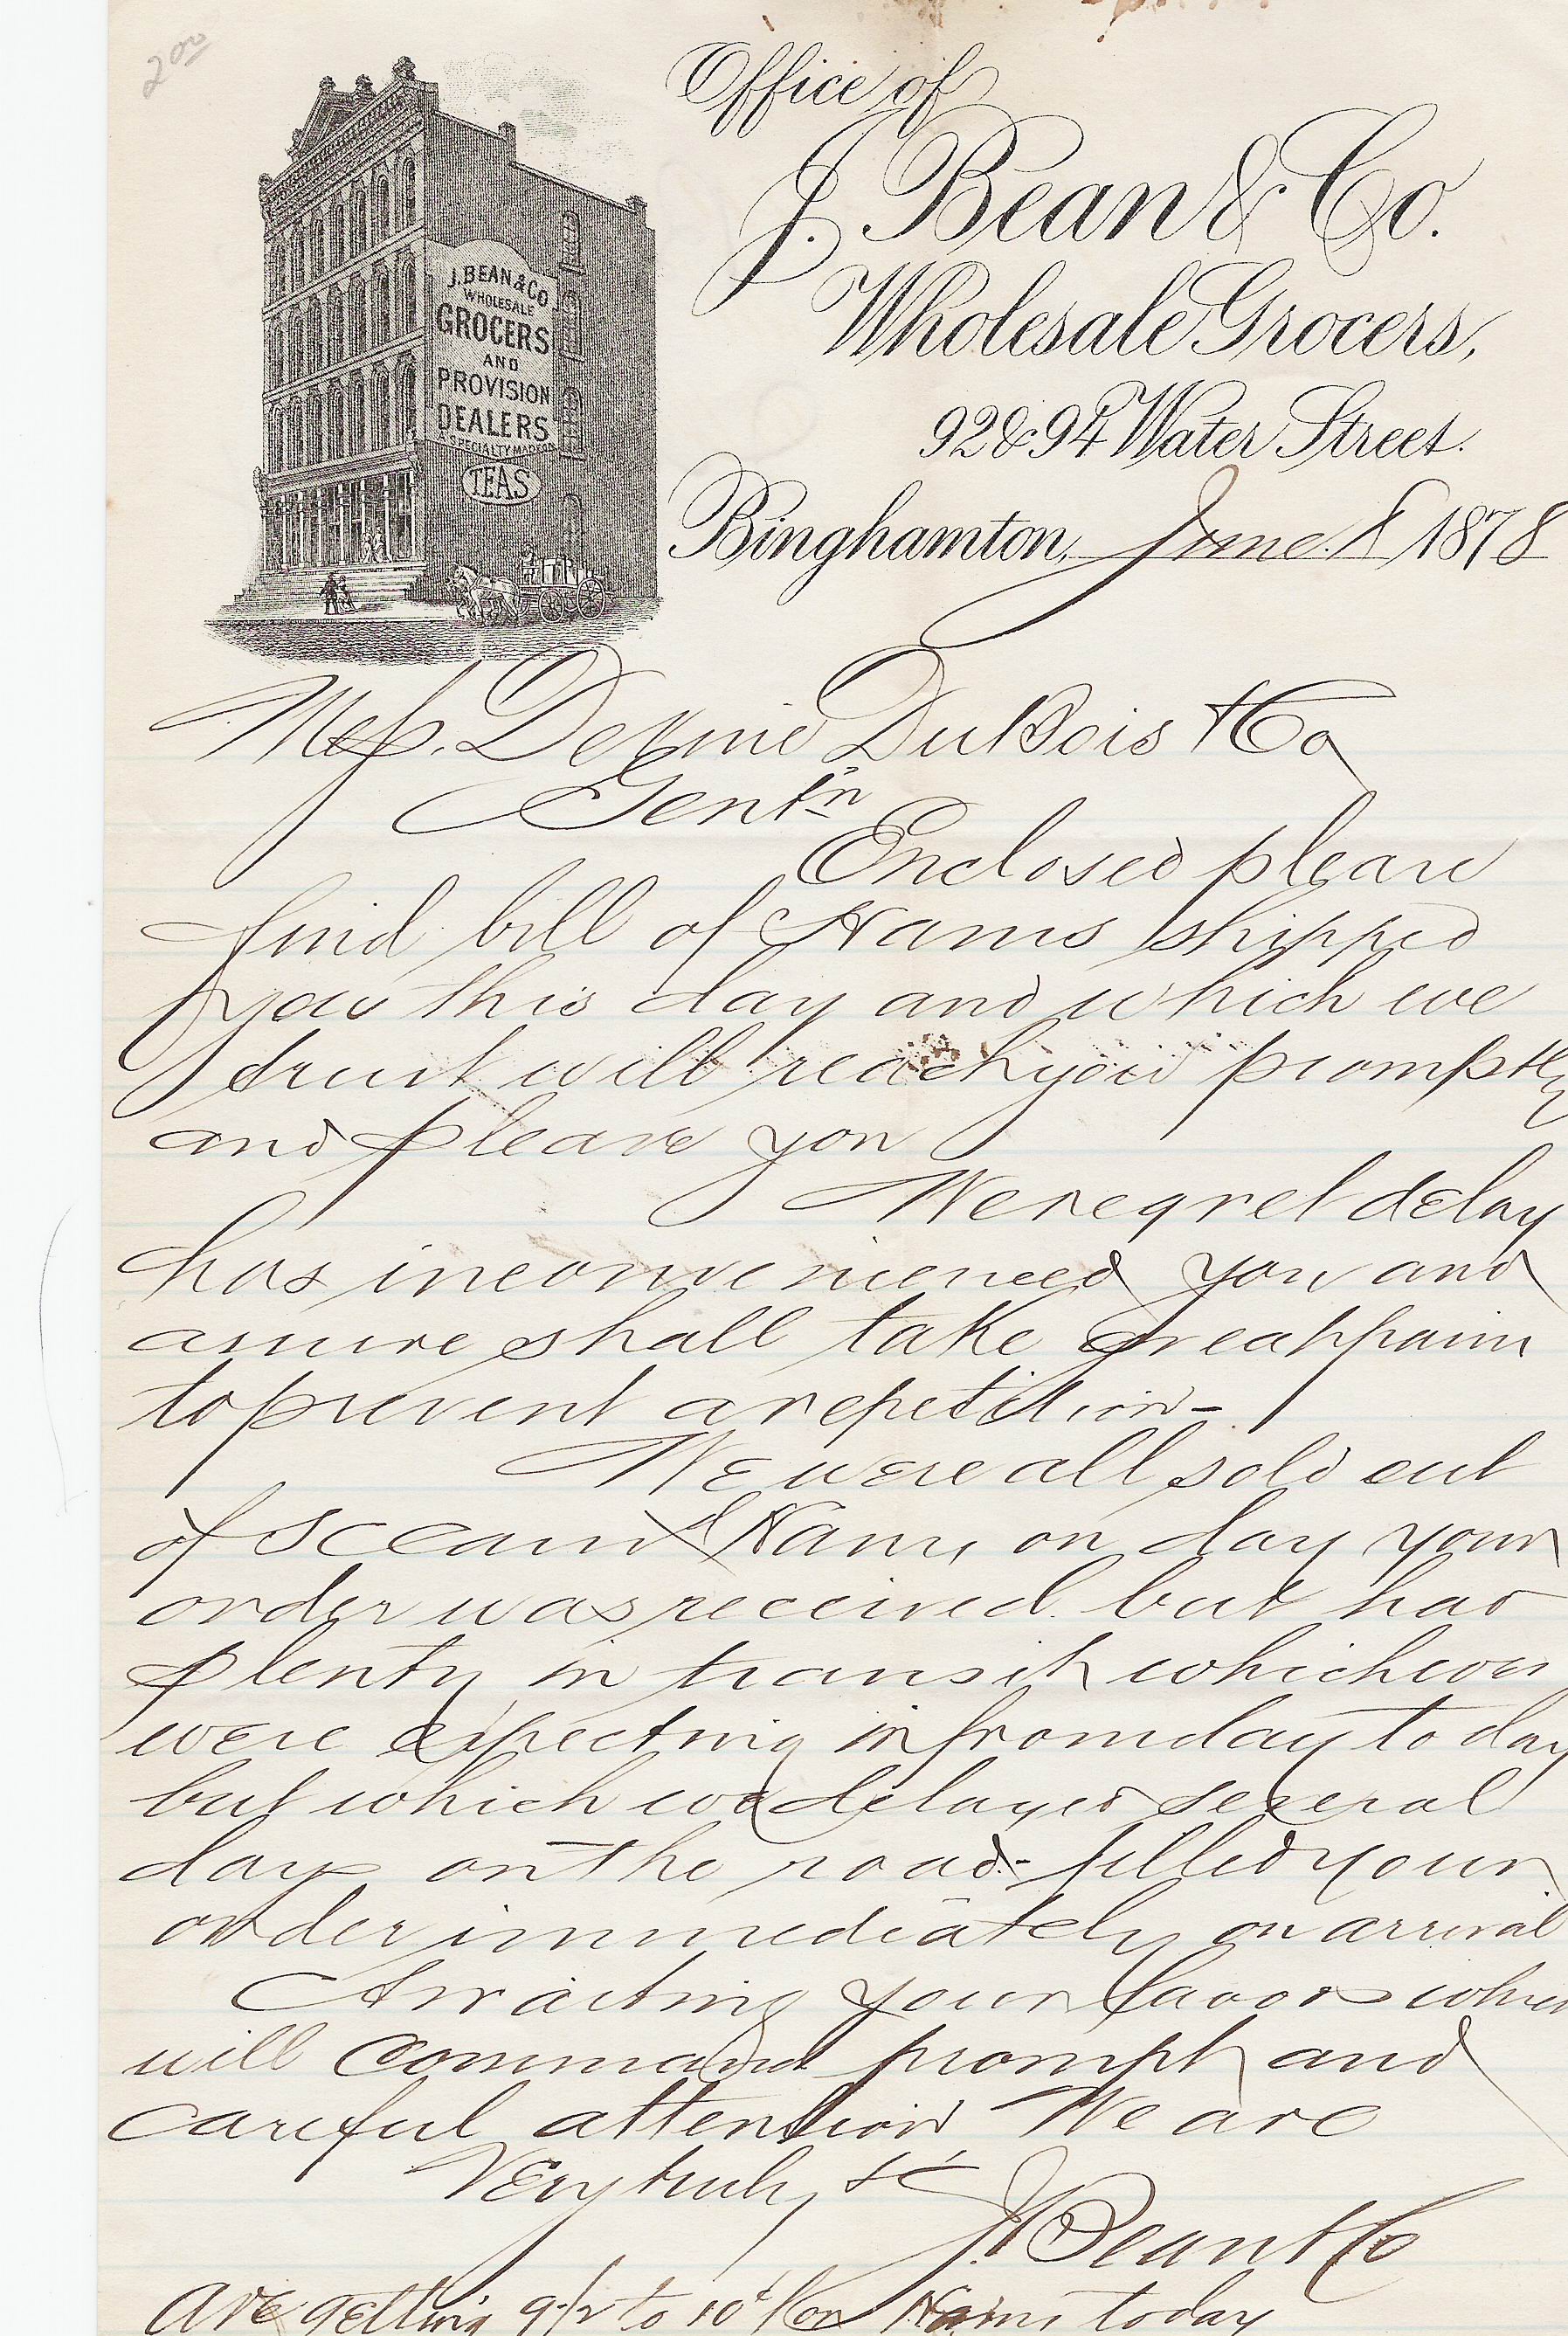 2 00
Office of
J. Bean & Co.
Wholesale Grocers,
92 & 94 Water Street.
Binghamton, June 8 1878
J. BEAN & CO
WHOLESALE
GROCERS
AND
PROVISION
DEALERS
A SPECIALTY MADE OF
TEAS
DuBois & Co
Gentn
Enclosed please
find bill of Hams shipped
you this day and which we
trust will reach you promptly
and please you
We regret delay
has inconvenienced you and
assure shall take great pains
to prevent a repetition -
We were all sold out
of Hams on day your
order was received but had
plenty in transit which we
were expecting in from day to day
but which was delayed several
days on the road - filled your
order immediately on arrival
Awaiting your favors which
will command prompt and
careful attention We are
Very truly &c
J Bean & Co
Are getting 9 1/2 to 10¢ for Hams today